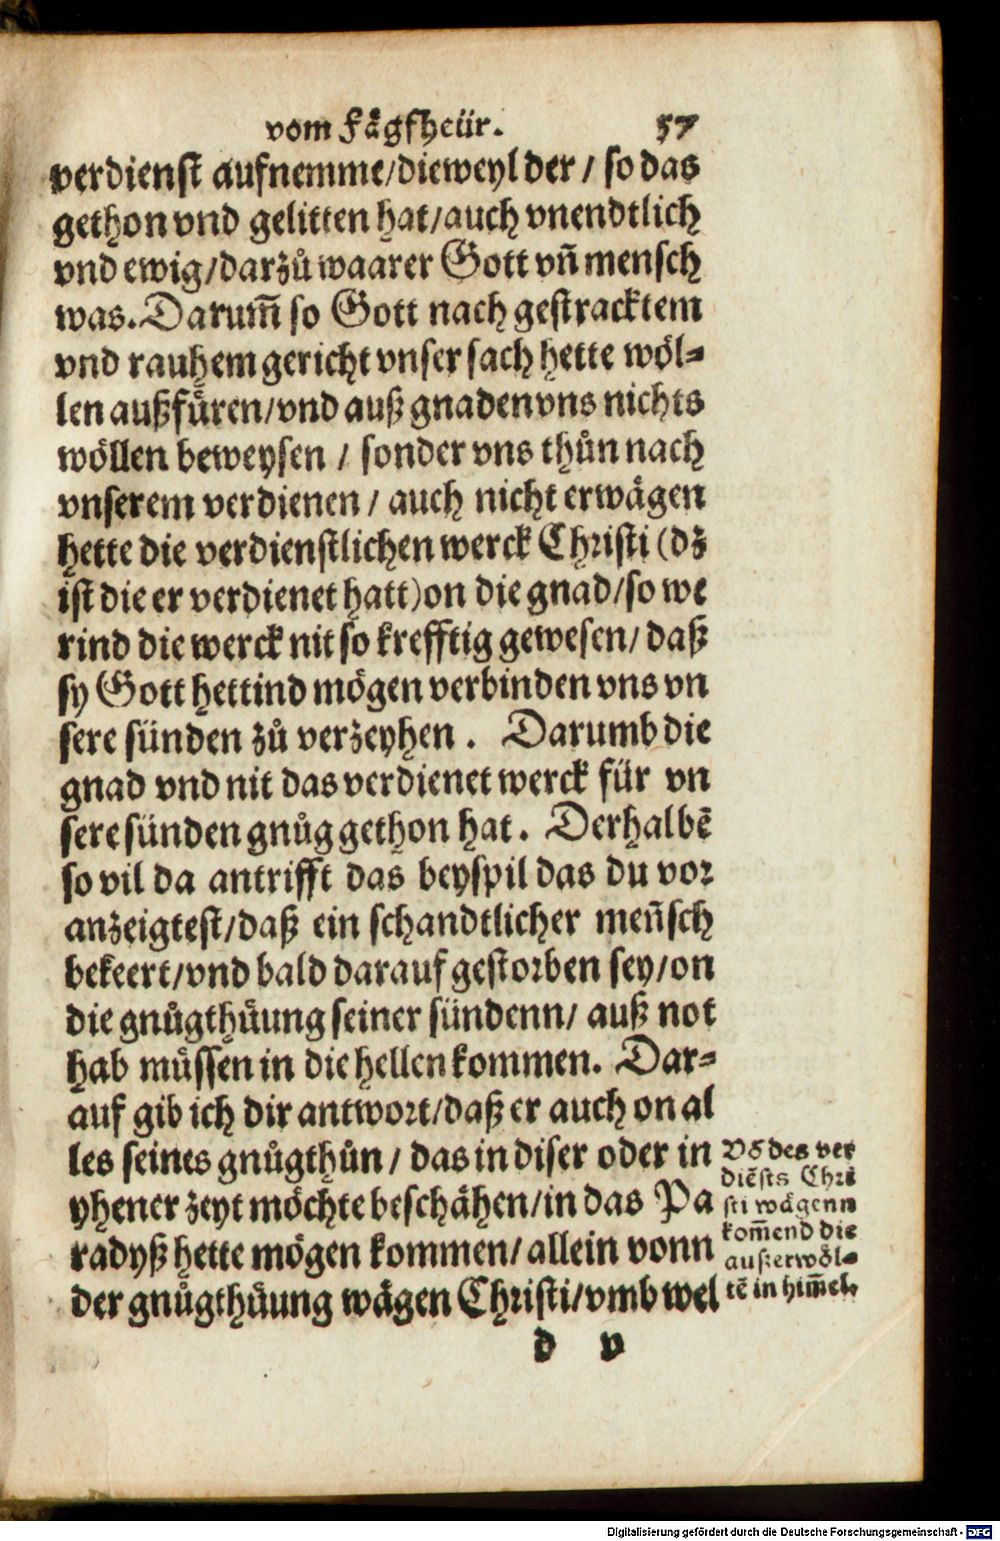 vom Fågfheür. 57
verdienst aufnemme/dieweyl der / so das
gethon vnd gelitten hat/auch vnendtlich
vnd ewig/darzů waarer Gott vn̄ mensch
was. Darum̄ so Gott nach gestracktem
vnd rauhem gericht vnser sach hette wöl⸗
len außfüren/vnd auß gnaden vns nichts
wöllen beweysen / sonder vns thůn nach
vnserem verdienen / auch nicht erwägen
hette die verdienstlichen werck Christi (dz
ist die er verdienet hatt) on die gnad/so we
rind die werck nit so krefftig gewesen/ daß
sy Gott hettind mögen verbinden vns vn
sere sünden zů verzeyhen . Darumb die
gnad vnd nit das verdienet werck für vn
sere sünden gnůg gethon hat. Derhalbē
so vil da antrifft das beyspil das du vor
anzeigtest/daß ein schandtlicher men̄sch
bekeert/vnd bald darauf gestorben sey/on
die gnůgthůung seiner sündenn/ auß not
hab müssen in die hellen kommen. Dar⸗
auf gib ich dir antwort/daß er auch on al
les seines gnůgthůn / das in diser oder in
yhener zeyt möchte beschähen/in das Pa
radyß hette mögen kommen/ allein vonn
der gnůgthůung wägen Christi/vmb wel
Vō des ver
diēsts Chri
sti wägenn
kom̄end die
außerwöl⸗
tē in him̄el.
d v
Digitalisierung gefördert durch die Deutsche Forschungsgemeinschaft - DFG